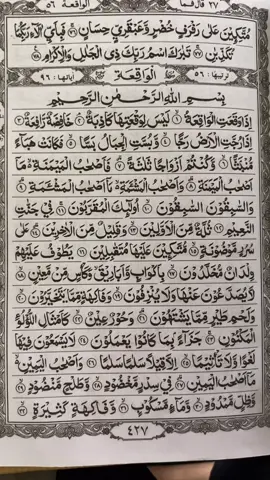 الواقعة ٥٦
قال فما ٢٧
متكئين على رفرف خضر وعبقري حسان ٧٦ فبأي الاء ربكما
تكذبن ٧٧ تبرك اسم ربك ذي الجلل والاكرام ٧٨
ترتيبها ٥٦ الواقعة آياتها ٩٦
بسم الله الرحمن الرحيم
اذا وقعت الواقعة ١ ليس لوقعتها كاذبة ٢ خافضة رافعة ٣
اذا رجت الارض رجا ٤ وبست الجبال بسا ٥ فكانت هباء
منبثا ٦ وكنتم ازواجا ثلثة ٧ فاصحب الميمنة ما
اصحب الميمنة ٨ واصحب المشئمة ما اصحب المشئمة ٩
والسبقون السبقون ١٠ اولئك المقربون ١١ في جنت
النعيم ١٢ ثلة من الاولين ١٣ وقليل من الاخرين ١٤ على
سرر موضونة ١٥ متكئين عليها متقبلين ١٦ يطوف عليهم
ولدان مخلدون ١٧ باكواب واباريق وكأس من معين ١٨
لا يصدعون عنها ولا ينزفون ١٩ وفاكهة مما يتخيرون ٢٠
ولحم طير مما يشتهون ٢١ وحور عين ٢٢ كامثال اللؤلؤ
المكنون ٢٣ جزاء بما كانوا يعملون ٢٤ لا يسمعون فيها
لغوا ولا تأثيما ٢٥ الا قيلا سلما سلما ٢٦ واصحب اليمين
ما اصحب اليمين ٢٧ في سدر مخضود ٢٨ وطلح منضود ٢٩
وظل ممدود ٣٠ وماء مسكوب ٣١ وفاكهة كثيرة ٣٢
٤٢٧